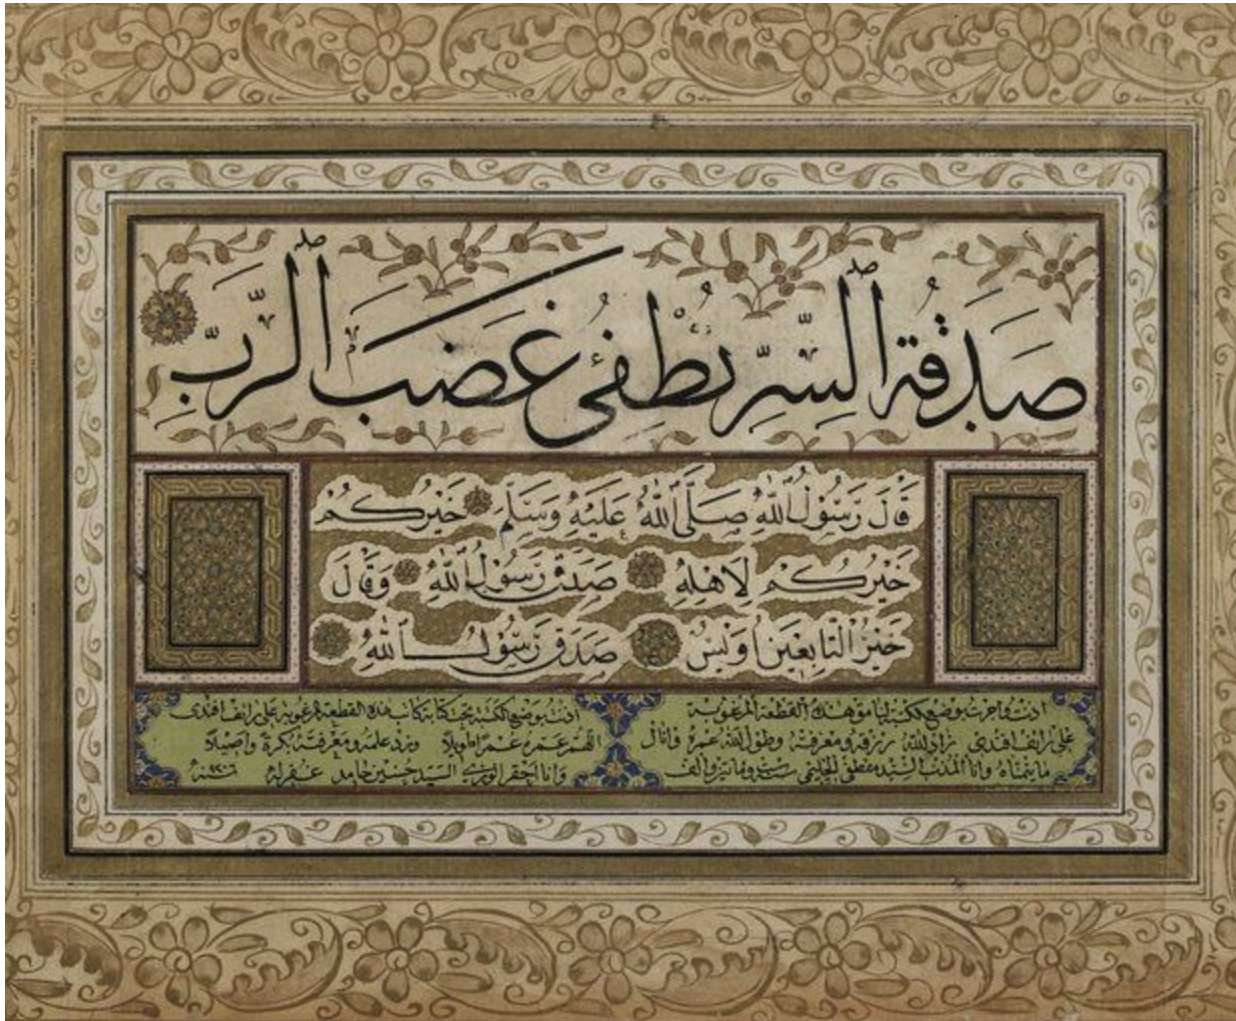 صَدَقَةُ السِّرِّ تُطْفِئُ غَضَبَ الرَّبِّ
قَالَ رَسُوْلُ اللهِ صَلَّى اللهُ عَلَيْهِ وَسَلَّمَ خَيْرُكُمْ
خَيْرُكُمْ لِاَهْلِهِ صَدَقَ رَسُوْلُ اللهِ وَقَالَ
خَيْرُ التَّابِعِيْنَ اُوَيْسُ صَدَقَ رَسُوْلُ اللهِ
اذنت واجزت بوضع الكتبة هذه القطعة المرغوبة
على رائف افندى زاد الله رزقه ومعرفته وطول الله عمره وانال
ما يتمناه وانا المذنب السيد مصطفى الحليمى سنة ست ومائتين والف
اذنت بوضع الكتبة تحت كتابة كاتب هذه القطعة المرغوبة على رائف افندى
اللهم عمره عمرا طويلا وزد علمه ومعرفته بكرة واصيلا
وانا احقر الورى السيد حسين حامد غفر له سنة ١٢٠٦